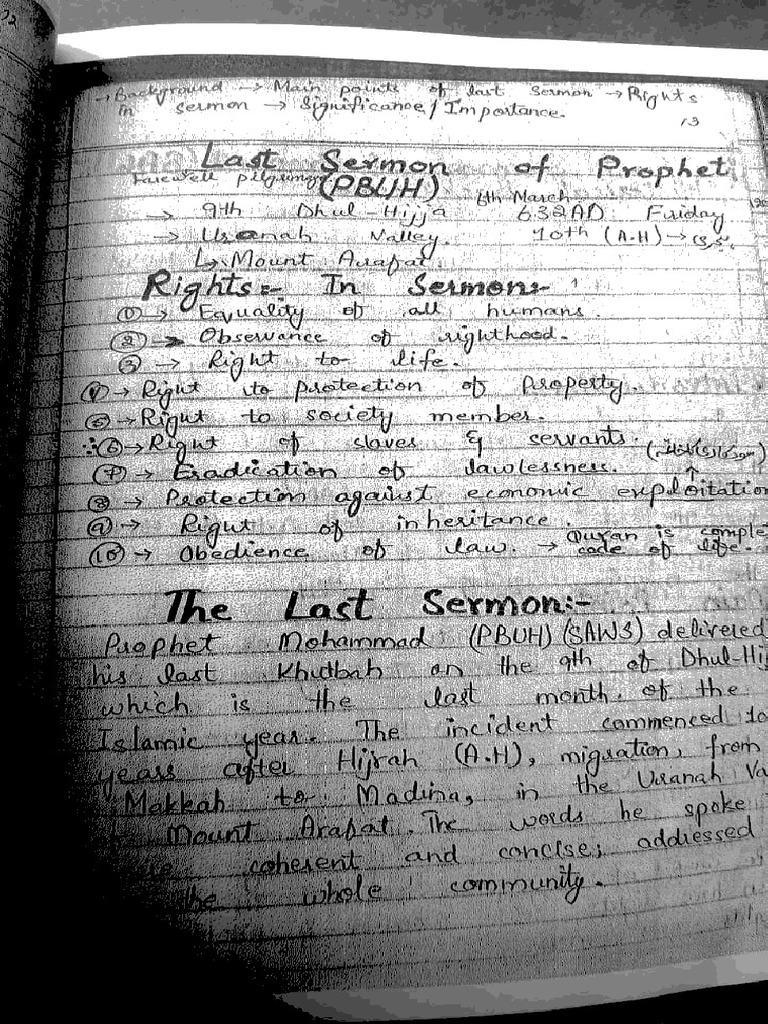 → Background → Main points of last sermon → Rights
in sermon → Significance / Importance.
13
Last Sermon of Prophet
Farewell pilgrimage (PBUH)
6th March
→ 9th Dhul-Hijja 632AD Friday
→ Uranah Valley. 10th (A.H) →
↳ Mount Arafat.
Rights:- In Sermon:-
(1) → Equality of all humans.
(2) → Observance of righthood.
(3) → Right to life.
(4) → Right to protection of property.
(5) → Right to society member.
(6) → Right of slaves & servants.
(7) → Eradication of lawlessness.
(8) → Protection against economic exploitation
(9) → Right of inheritance.
(10) → Obedience of law. → Quran is comple
code of life.
The Last Sermon:-
Prophet Mohammad (PBUH) (SAWS) delivered
his last Khutbah on the 9th of Dhul-Hij
which is the last month of the
Islamic year. The incident commenced 10
years after Hijrah (A.H), migration, from
Makkah to Madina, in the Uranah Va
Mount Arafat. The words he spoke
coherent and concise, addressed
the whole community.